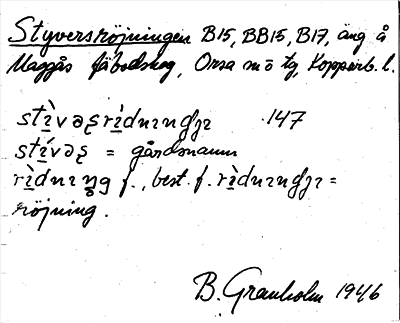 Styversröjningen B15, BB15, B17, äng å
Maggås fäbodskog, Orsa sn ö tg, Kopparb. l.
stɪ̀vəʂrɪ̀dnɪŋɡɟɪ 147
stɪ́vəʂ = gårdsnamn
rɪ̀dnɪŋg f., best. f. rɪ̀dnɪŋɡɟɪ =
röjning.
B. Granholm 1946